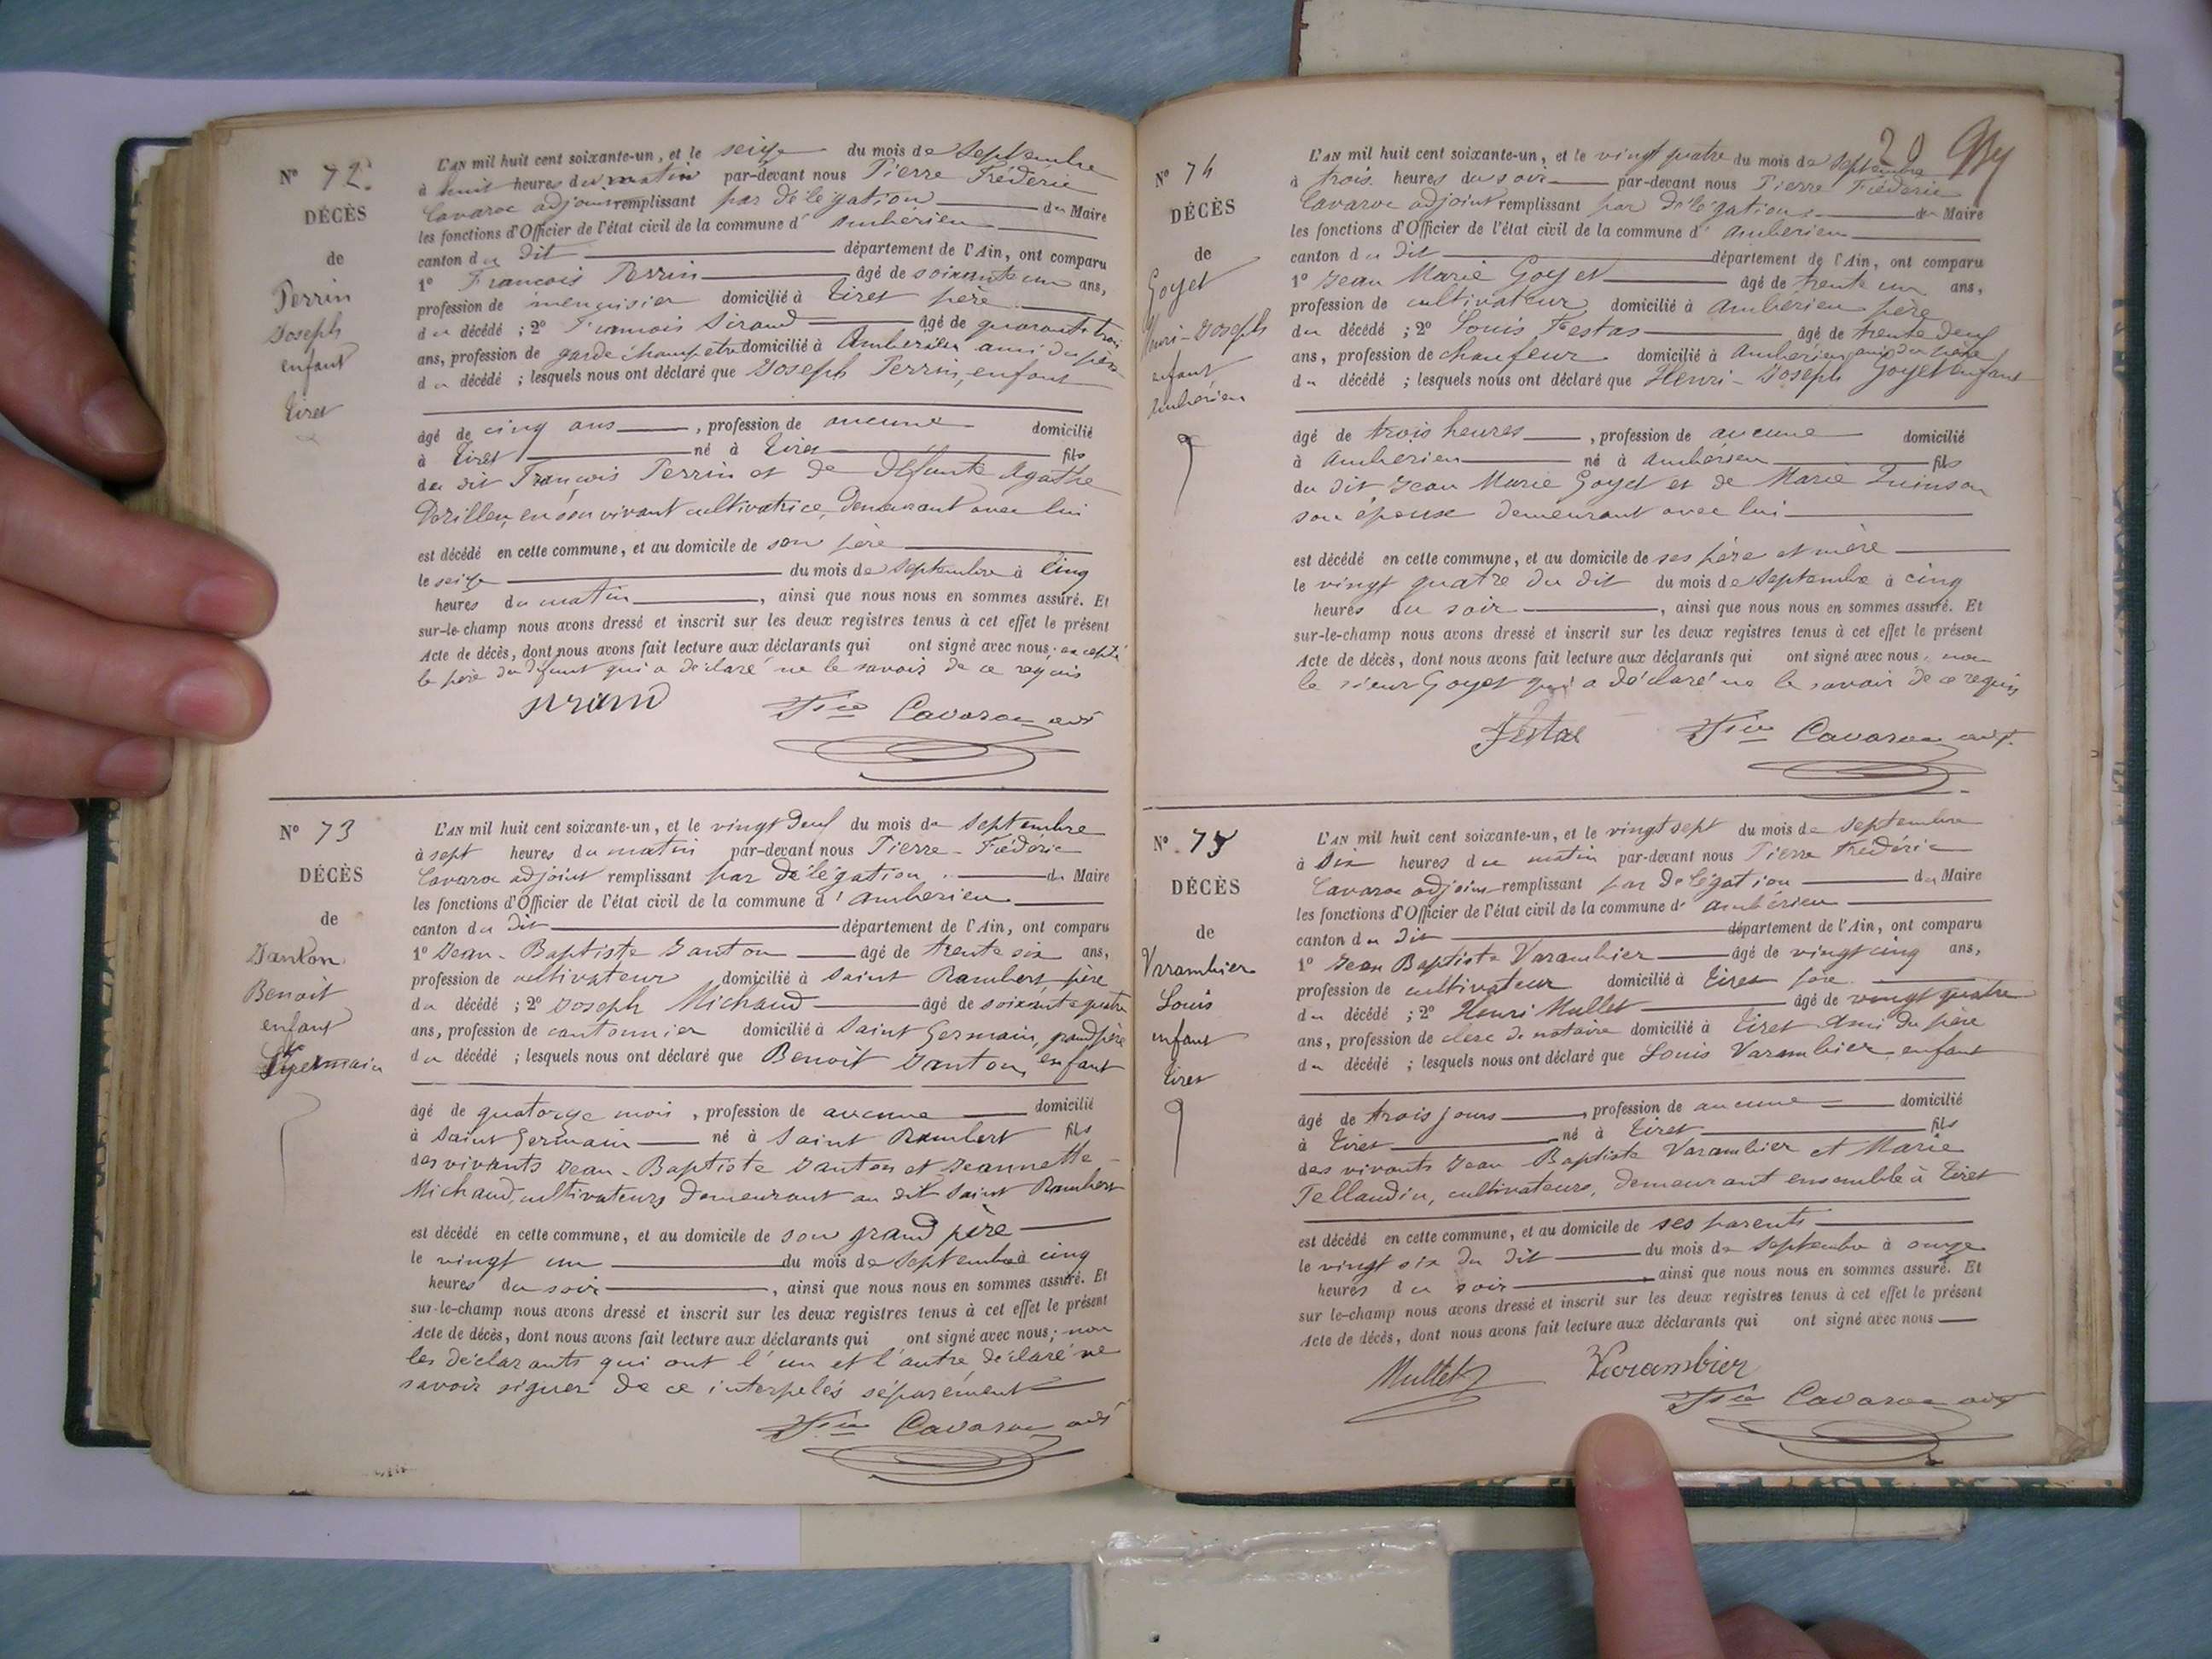 N° 72.
DÉCÈS
de
Perrin
Joseph
enfant
tiret
L'AN mil huit cent soixante-un, et le seize du mois de Septembre
à huit heures du matin par-devant nous Pierre Fréderic
Cavaroc adjoint remplissant par délégation du Maire
les fonctions d'Officier de l'état civil de la commune d' Ambérieu
canton du dit département de l'Ain, ont comparu
1° François Perrin âgé de soixante un ans,
profession de menuisier domicilié à tiret père
du décédé ; 2° François Siraud âgé de quarante trois
ans, profession de garde champetre domicilié à Ambérieu ami du père
du décédé ; lesquels nous ont déclaré que Joseph Perrin, enfant
âgé de cinq ans , profession de aucune domicilié
à tiret né à tiret fils
du dit François Perrin et de défunte Agathe
en son vivant cultivatrice, demeurant avec lui
est décédé en cette commune, et au domicile de son père
le seize du mois de Septembre à cinq
heures du matin , ainsi que nous nous en sommes assuré. Et
sur-le-champ nous avons dressé et inscrit sur les deux registres tenus à cet effet le présent
Acte de décès, dont nous avons fait lecture aux déclarants qui ont signé avec nous, excepté
le père du défunt qui a déclaré ne le savoir de ce requis
Siraud Fréic Cavaroc adj
N° 73
DÉCÈS
de
Janton
Benoit
enfant
St germain
L'AN mil huit cent soixante-un, et le vingt deux du mois de Septembre
à sept heures du matin par-devant nous Pierre-Fréderic
Cavaroc adjoint remplissant par délégation du Maire
les fonctions d'Officier de l'état civil de la commune d' Ambérieu
canton du dit département de l'Ain, ont comparu
1° Jean-Baptiste Janton âgé de trente six ans,
profession de cultivateur domicilié à Saint Rambert, père
du décédé ; 2° Joseph Michaud âgé de soixante quatre
ans, profession de cantonnier domicilié à Saint Germain, grand père
du décédé ; lesquels nous ont déclaré que Benoit Janton, enfant
âgé de quatorze mois , profession de aucune domicilié
à Saint Germain né à Saint Rambert fils
des vivants Jean-Baptiste Janton et Jeannette
Michaud, cultivateurs demeurant au dit Saint Rambert
est décédé en cette commune, et au domicile de son grand père
le vingt un du mois de Septembre à cinq
heures du soir , ainsi que nous nous en sommes assuré. Et
sur-le-champ nous avons dressé et inscrit sur les deux registres tenus à cet effet le présent
Acte de décès, dont nous avons fait lecture aux déclarants qui ont signé avec nous ; non
les déclarants qui ont l'un et l'autre déclaré ne
savoir signer de ce interpelés séparément
Fréic Cavaroc adj
20
N° 74
DÉCÈS
de
Goyet
Henri-Joseph
enfant
Ambérieu
L'AN mil huit cent soixante-un, et le vingt quatre du mois de Septembre
à trois heures du soir par-devant nous Pierre Fréderic
Cavaroc adjoint remplissant par délégation du Maire
les fonctions d'Officier de l'état civil de la commune d' Ambérieu
canton du dit département de l'Ain, ont comparu
1° Jean Marie Goyet âgé de trente un ans,
profession de cultivateur domicilié à Ambérieu père
du décédé ; 2° Louis Festas âgé de trente deux
ans, profession de chaufeur domicilié à Ambérieu ami du père
du décédé ; lesquels nous ont déclaré que Henri-Joseph Goyet enfant
âgé de trois heures , profession de aucune domicilié
à Ambérieu né à Ambérieu fils
du dit Jean Marie Goyet et de Marie Quinson
son épouse demeurant avec lui
est décédé en cette commune, et au domicile de ses père et mère
le vingt quatre du dit du mois de Septembre à cinq
heures du soir , ainsi que nous nous en sommes assuré. Et
sur-le-champ nous avons dressé et inscrit sur les deux registres tenus à cet effet le présent
Acte de décès, dont nous avons fait lecture aux déclarants qui ont signé avec nous, non
le sieur Goyet qui a déclaré ne le savoir de ce requis
Festas Fréic Cavaroc adj.
N° 75
DÉCÈS
de
Varambier
Louis
enfant
tiret
L'AN mil huit cent soixante-un, et le vingt sept du mois de Septembre
à dix heures du matin par-devant nous Pierre Fréderic
Cavaroc adjoint remplissant par délégation du Maire
les fonctions d'Officier de l'état civil de la commune d' Ambérieu
canton du dit département de l'Ain, ont comparu
1° Jean Baptiste Varambier âgé de vingt cinq ans,
profession de cultivateur domicilié à tiret père
du décédé ; 2° Henri Mullet âgé de vingt quatre
ans, profession de clerc de notaire domicilié à tiret ami du père
du décédé ; lesquels nous ont déclaré que Louis Varambier enfant
âgé de trois jours , profession de aucune domicilié
à tiret né à tiret fils
des vivants Jean Baptiste Varambier et Marie
Tellaudin, cultivateurs, demeurant ensemble à tiret
est décédé en cette commune, et au domicile de ses parents
le vingt six du dit du mois de Septembre à onze
heures du soir , ainsi que nous nous en sommes assuré. Et
sur le-champ nous avons dressé et inscrit sur les deux registres tenus à cet effet le présent
Acte de décès, dont nous avons fait lecture aux déclarants qui ont signé avec nous
Mullet Varambier
Fréic Cavaroc adj